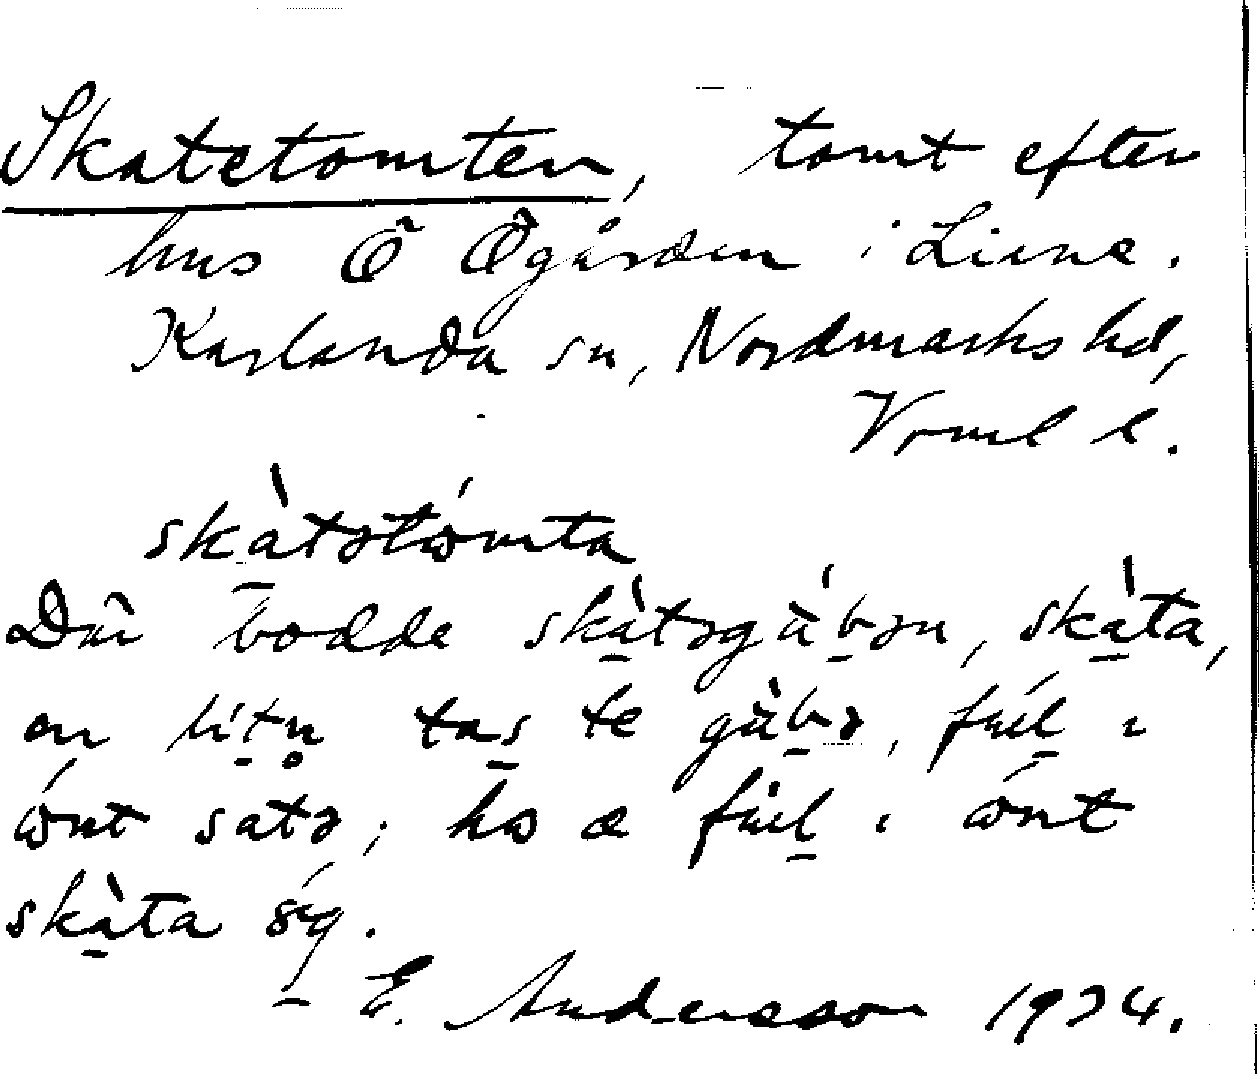 Skatetomten, tomt efter
hus Ö Ögården i Liane.
Karlanda sn, Nordmarks hd,
Vrml l.
skàtətómta
Där bodde skàtəgùbən, skàta,
en lítn tas te gùbə, fúl i
ónt satə; ho æ fúl i ónt
skàta síg.
E. Andersson 1934.